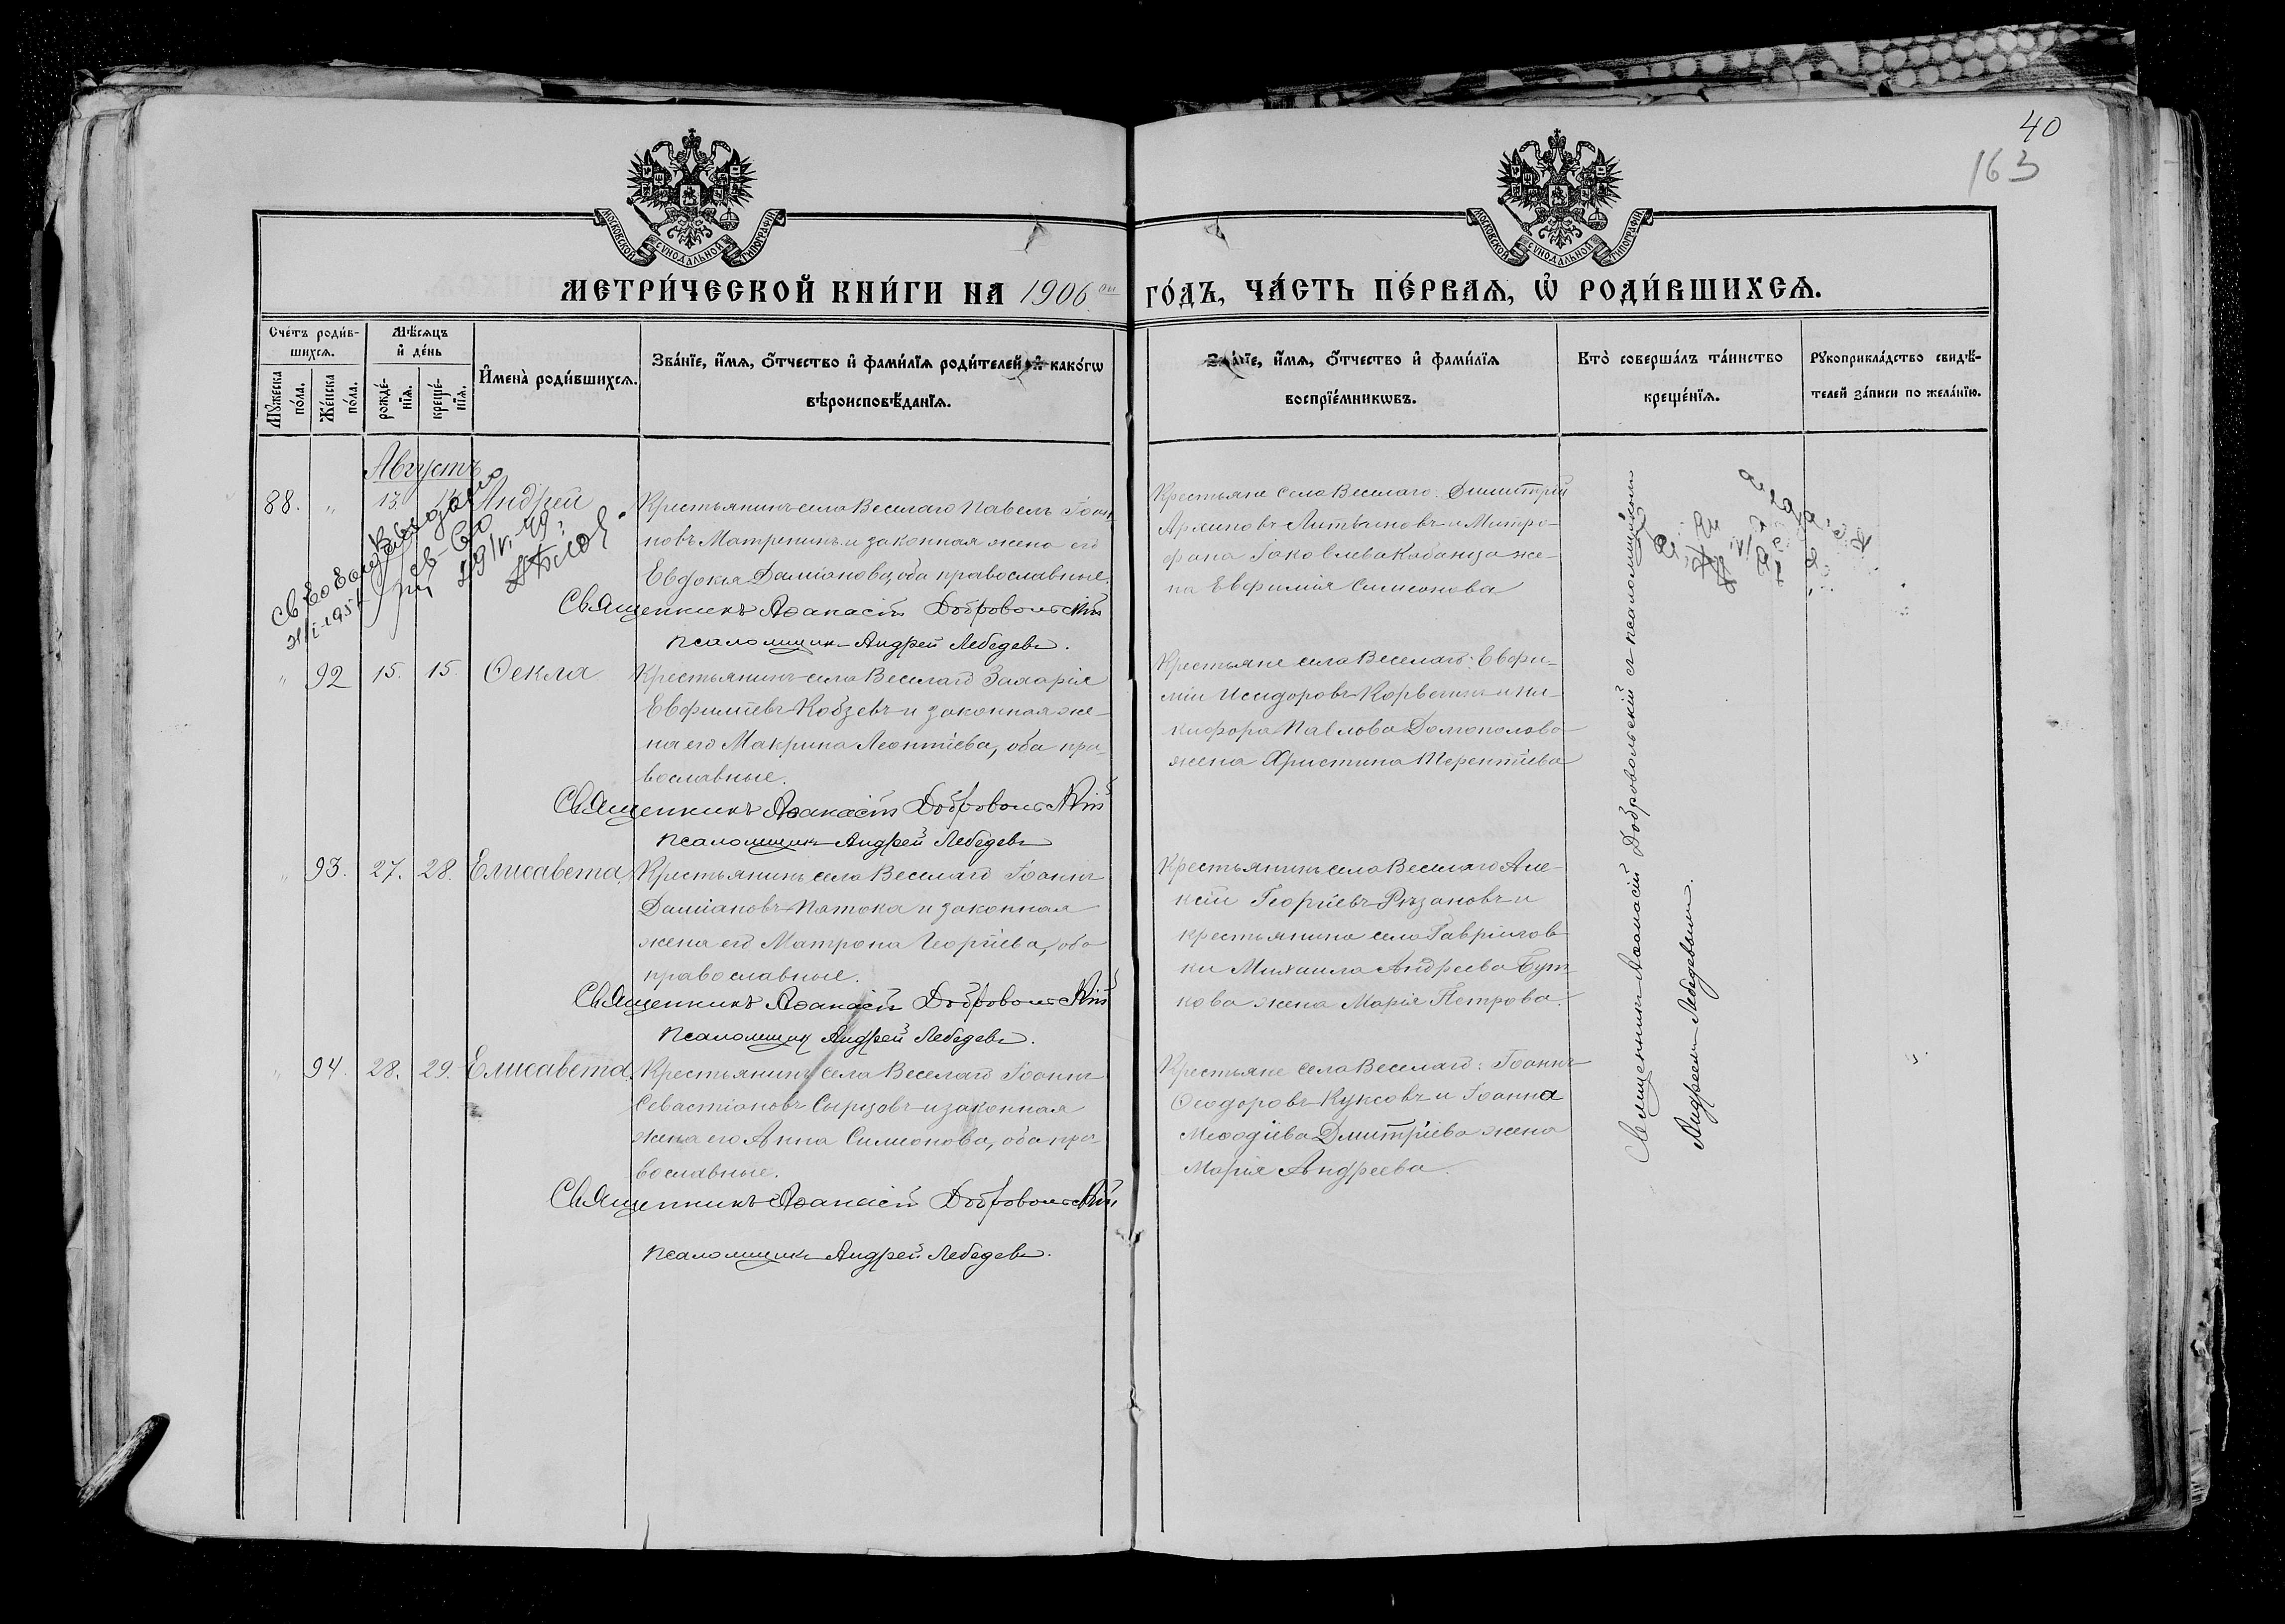 40
163
МОСКОВСКОЙ СѴНОДАЛЬНОЙ ТИПОГРАФІИ
МОСКОВСКОЙ СѴНОДАЛЬНОЙ ТИПОГРАФІИ
МЕТРИ́ЧЕСКОЙ КНИ́ГИ НА 1906 ой ГО́ДЪ, ЧА́СТЬ ПЕ́РВАѦ, Ѡ҆ РОДИ́ВШИХСѦ.
Сче́тъ роди́в-
шихсѧ.
Мꙋ́жеска по́ла.
Же́нска по́ла.
Мѣ́сѧцъ
и҆ де́нь
рожде́-
нїѧ.
креще́-
нїѧ.
И҆мена̀ роди́вшихсѧ.
Зва́нїе, и҆́мѧ, ѻ҆́тчество и҆ фами́лїѧ роди́телей и҆ како́гѡ
вѣроисповѣ́данїѧ.
Зва́нїе, и҆́мѧ, ѻ҆́тчество и҆ фами́лїѧ
воспрїе́мникѡвъ.
Кто̀ соверша́лъ та́инство
креще́нїѧ.
Рꙋкоприкла́дство свидѣ́-
телей за́писи по жела́нїю.
Августъ
88. " 13. Андрей
Крестьянинъ села Веселаго Павелъ Іоан-
новъ Матренинъ и законная жена его
Евдокія Даміанова, оба православные.
Священникъ Аѳанасій Добровольскій
Псаломщикъ Андрей Лебедевъ.
Крестьяне села Веселаго: Димитрій
Архиповъ Литвиновъ и Митро-
фана Іаковлева Кабанца же-
на Евфимія Симеонова
Выдано
св-во
" 92 15. 15. Ѳекла
Крестьянинъ села Веселаго Захарія
Евфиміевъ Кобзевъ и законная же-
на его Макрина Леонтіева, оба пра-
вославные.
Священникъ Аѳанасій Добровольскій
Псаломщикъ Андрей Лебедевъ
Крестьяне села Веселаго: Евфи-
мій Исидоровъ и Ни-
кифора Павлова
жена Христина Терентіева
" 93. 27. 28. Елисавета.
Крестьянинъ села Веселаго Іоаннъ
Даміановъ Патока и законная
жена его Матрона Георгіева, оба
православные.
Священникъ Аѳанасій Добровольскій
Псаломщикъ Андрей Лебедевъ.
Крестьянинъ села Веселаго Але-
ксій Георгіевъ Рязановъ и
крестьянина села Гавриилов-
ки Михаила Андреева Бут-
кова жена Марія Петрова.
" 94. 28. 29. Елисавета.
Крестьянинъ села Веселаго Іоаннъ
Севастіановъ Сырцовъ и законная
жена его Анна Симеонова, оба пра-
вославные.
Священникъ Аѳанасій Добровольскій
Псаломщикъ Андрей Лебедевъ.
Крестьяне села Веселаго: Іоаннъ
Ѳеодоровъ Куксовъ и Іоанна
Меѳодіева Дмитріева жена
Марія Андреева.
Священникъ Аѳанасій Добровольскій съ псаломщикомъ
Андреемъ Лебедевымъ.